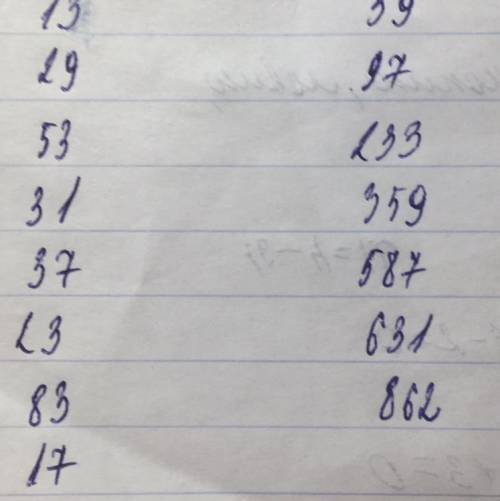 13 59
29 97
53 233
31 359
37 587
23 631
83 862
17